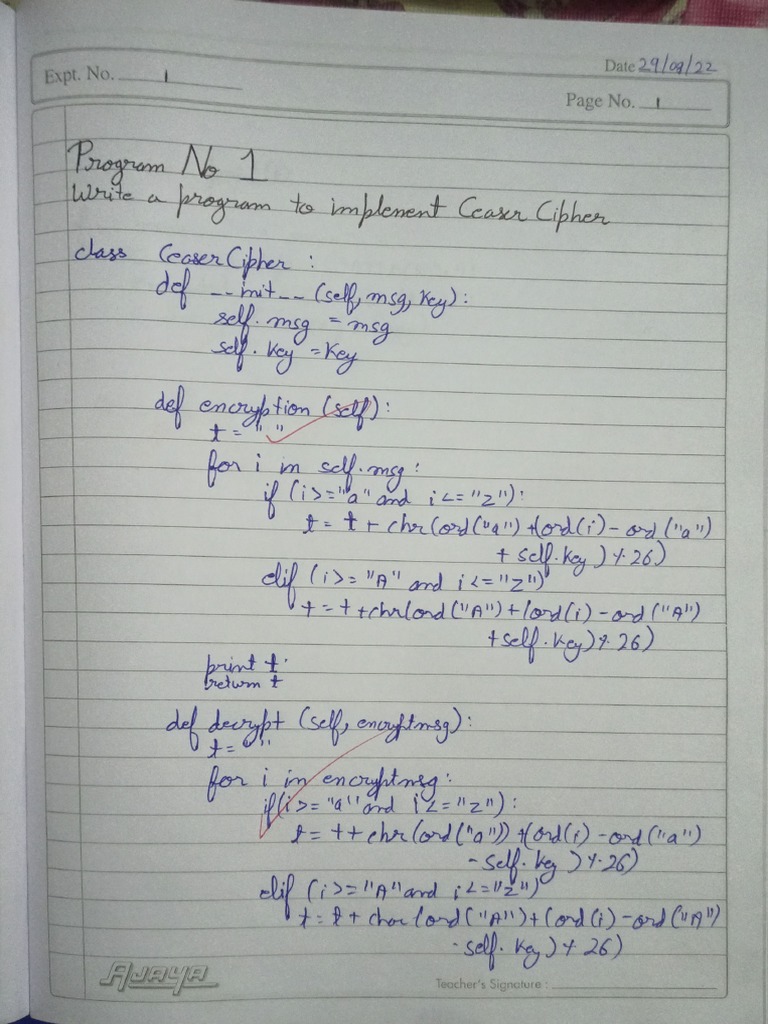 Expt. No. 1
Date 29/09/22
Page No. 1
Program No 1
Write a program to implement Ceaser Cipher
class CeaserCipher :
def __init__ (self, msg, key) :
self. msg = msg
self. key = key
def encryption (self) :
t = " "
for i in self.msg :
if (i >= "a" and i <= "z") :
t = t + chr(ord("a") + (ord(i) - ord ("a")
+ self.key ) % 26)
elif (i >= "A" and i <= "Z")
t = t + chr(ord("A") + (ord(i) - ord ("A")
+ self. key) % 26)
print t
return t
def decrypt (self, encryptmsg) :
t = " "
for i in encryptmsg :
if (i >= "a" and i <= "z") :
t = t + chr(ord("a")) + (ord(i) - ord("a")
- self. key ) % 26)
elif (i >= "A" and i <= "Z")
t = t + char(ord("A") + (ord(i) - ord("A")
- self. key) % 26)
AJAYA
Teacher's Signature :